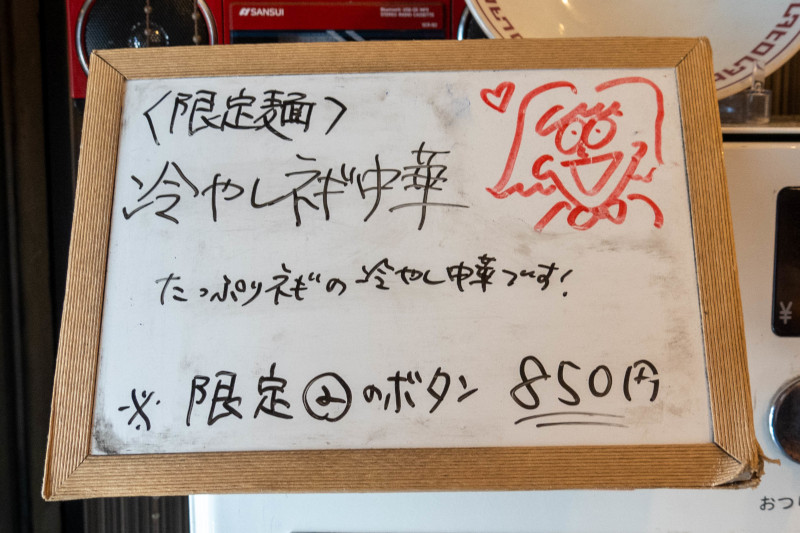 SANSUI
〈限定麺〉
冷やしネギ中華
たっぷりネギの冷やし中華です!
※限定②のボタン 850円
¥
おつり